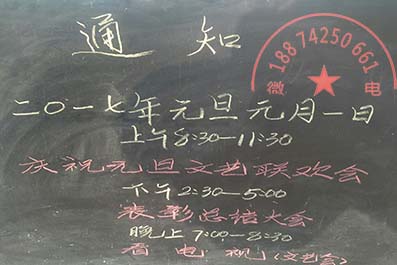 通知
二〇一七年元旦元月一日
上午8:30—11:30
庆祝元旦文艺联欢会
下午2:30—5:00
表彰总结大会
晚上7:00—8:30
看电视(文艺会)
18874250661
微电